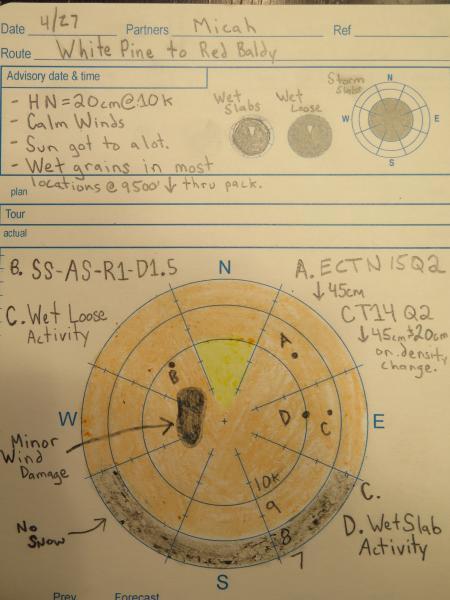 Date 4/27 Partners Micah Ref
Route White Pine to Red Baldy
Advisory date & time
- HN=20cm@10k
- Calm Winds
- Sun got to alot.
- Wet grains in most
locations @ 9500' ↓ thru pack.
Wet Slabs
Wet Loose
Storm Slabs
N
W E
S
plan
Tour
actual
B. SS-AS-R1-D1.5
C. Wet Loose
Activity
A. ECTN 15 Q2
↓45cm
CT14 Q2
↓45cm & 20cm
on density
change.
N
A
B
W E
D C
Minor
Wind
Damage
10k
9
8
7
No
Snow
C.
D. Wet Slab
Activity
S
Prev Forecast